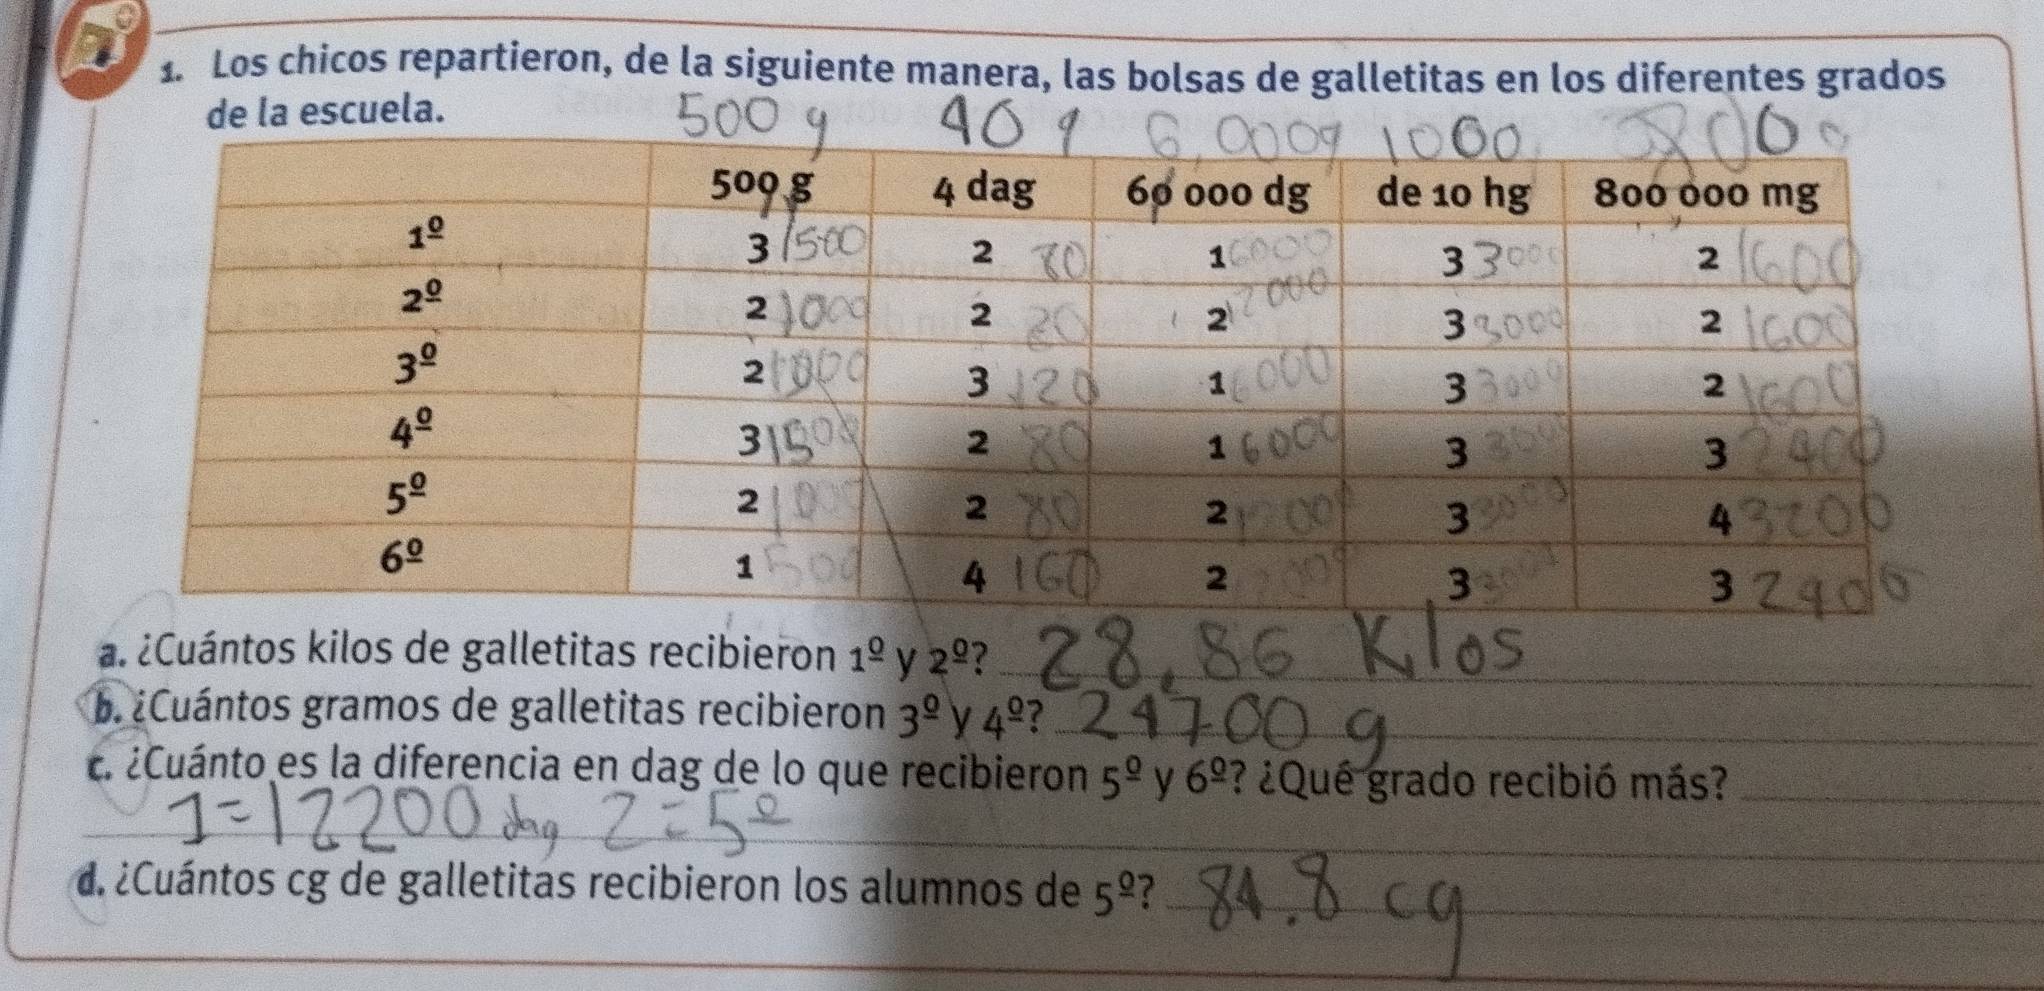 1. Los chicos repartieron, de la siguiente manera, las bolsas de galletitas en los diferentes grados
de la escuela.
500 g 40 g 6,000g 1000 800
500 g 4 dag 60 000 dg de 10 hg 800 000 mg
1º 3 1500 2 80 1 6000 3 3000 2 1600
2º 2 1000 2 80 2 12000 3 3000 2 1600
3º 2 1000 3 120 1 6000 3 3000 2 1600
4º 3 1500 2 80 1 6000 3 3000 3 2400
5º 2 1000 2 80 2 3 3000 4 3200
6º 1 500 4 160 2 3 3000 3 2400
a. ¿Cuántos kilos de galletitas recibieron 1º y 2º? 28,86 Kilos
b. ¿Cuántos gramos de galletitas recibieron 3º y 4º? 24700 g
c. ¿Cuánto es la diferencia en dag de lo que recibieron 5º y 6º? ¿Qué grado recibió más?
1=12200 dag 2=5º
d. ¿Cuántos cg de galletitas recibieron los alumnos de 5º? 84.8 cg